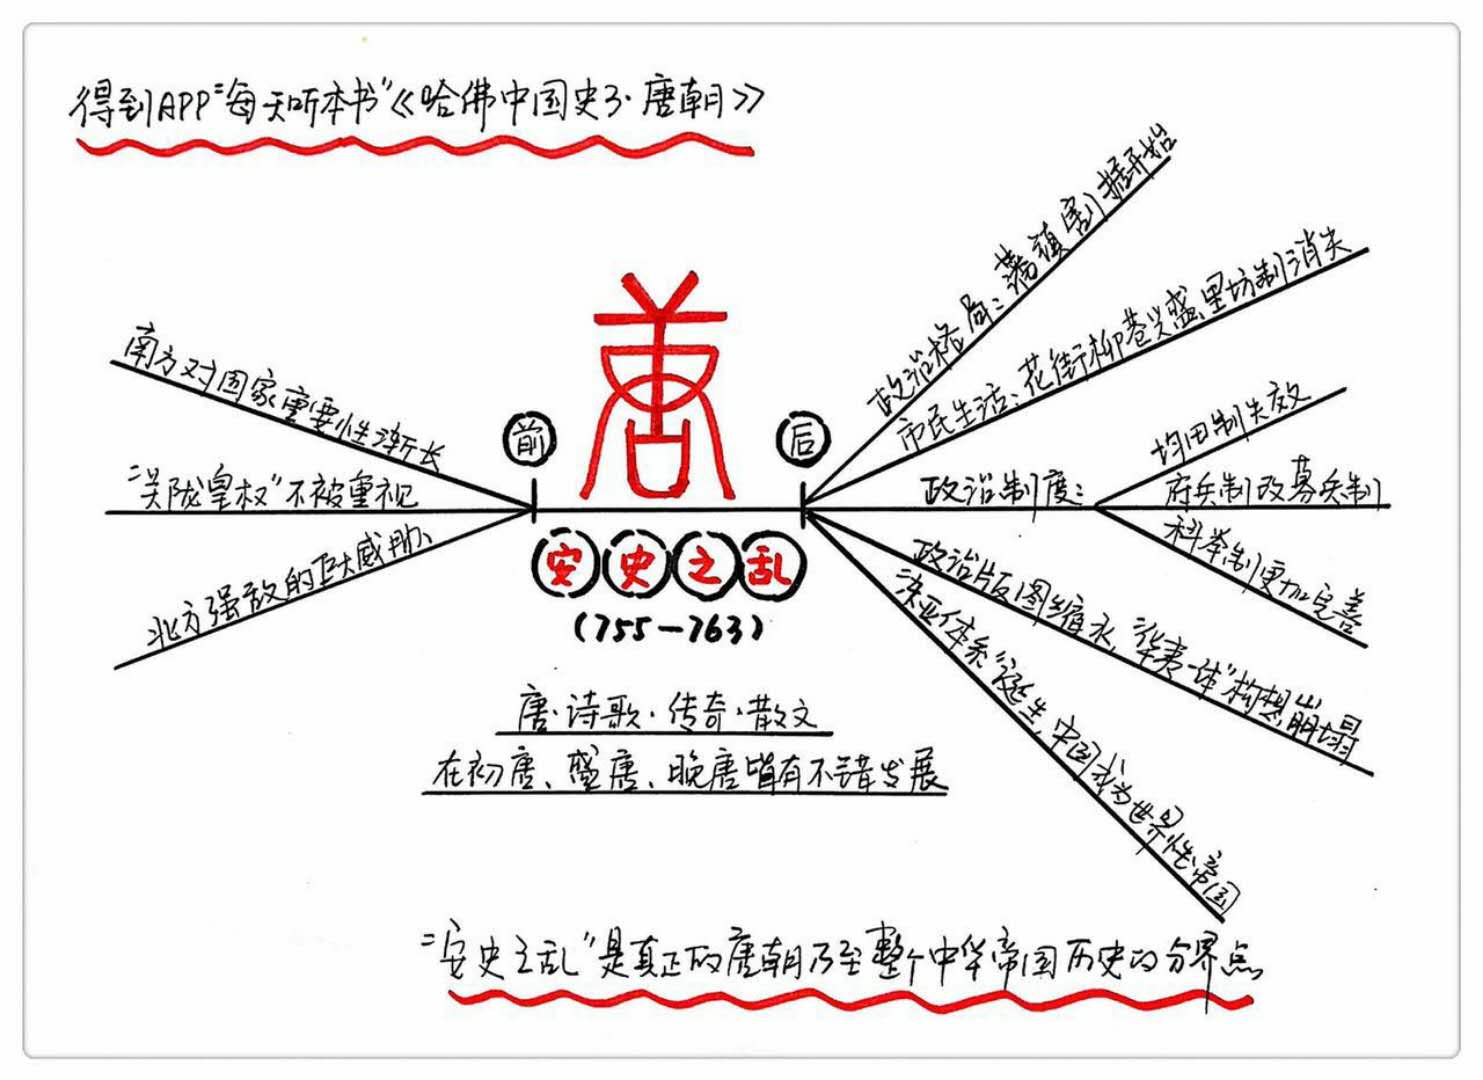 得到APP"每天听本书"《哈佛中国史3·唐朝》
唐
前
后
南方对国家重要性渐长
"关陇皇权"不被重视
北方强敌的巨大威胁
安史之乱
(755-763)
政治格局：藩镇割据开始
市民生活：花街柳巷兴盛,里坊制消失
政治制度：
均田制失效
府兵制改募兵制
科举制更加完善
政治版图缩水,"华夷一体"构想崩塌
"泛亚体系"诞生,中国成为世界性帝国
唐·诗歌·传奇·散文
在初唐、盛唐、晚唐皆有不错发展
"安史之乱"是真正的唐朝乃至整个中华帝国历史的分界点